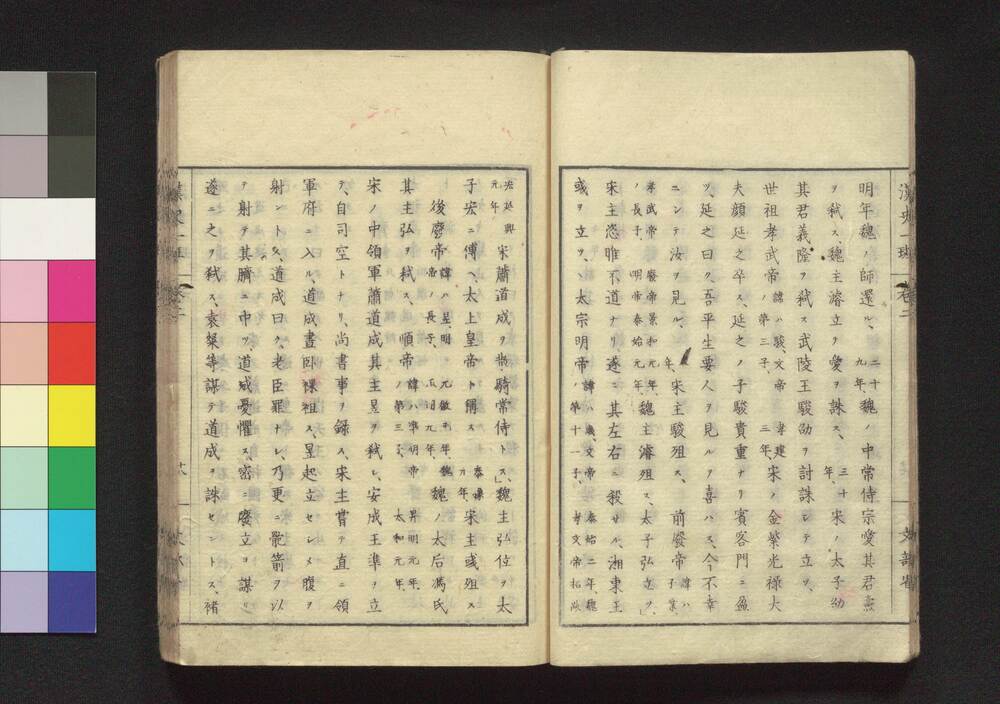 明年魏ノ師還ル、二十九年、魏ノ中常侍宗愛其君燾
ヲ弑ス、魏主濬立ヲ愛ヲ誅ス、三十年、宋ノ太子劭
其君義隆ヲ弑ス武陵王駿劭ヲ討誅レテ立ツ、
世祖孝武帝諱ハ駿、文帝ノ第三子、孝建三年、宋ノ金紫光禄大
夫顔延之卒ス、延之ノ子駿貴重ナリ賓客門ニ盈
ツ、延之曰ク、吾平生要人ヲ見ルヲ喜ハス、今不幸
ニシテ汝ヲ見ル、年、宋主駿殂ス、前廢帝諱ハ子業、
孝武帝ノ長子、廢帝景和元年、明帝泰始元年、魏主濬殂ス、太子弘立ツ、
宋主恣睢不道ナリ遂ニ其左右ニ殺サル、湘東王
彧ヲ立ツ、太宗明帝諱ハ彧、文帝ノ第十一子、泰始二年、魏孝文帝拓跋
宏延興元年宋蕭道成ヲ散騎常侍トス、魏主弘位ヲ太
子宏ニ傳ヘ太上皇帝ト稱ス泰豫元年、宋主彧殂ス
後廢帝諱ハ昱、明帝ノ長子、元徽四年、魏ノ太后馮氏
其主弘ヲ弑ス、順帝諱ハ準、明帝ノ第三子、昇明元年、太和元年、
宋ノ中領軍蕭道成其主昱ヲ弑レ、安成王準ヲ立
テ、自司空トナリ、尚書事ヲ録ス、宋主嘗テ直ニ領
軍府ニ入ル、道成晝卧裸袒ス、昱起立セレメ腹ヲ
射ントス、道成曰ク、老臣罪ナレ、乃更ニ骲箭ヲ以
テ射テ其臍ニ中ツ道成憂懼ス、密ニ廢立ヲ謀リ
遂ニ之ヲ弑ス、袁粲等謀テ道成ヲ誅セントス、褚
漢史一班
巻二
十八
文部省